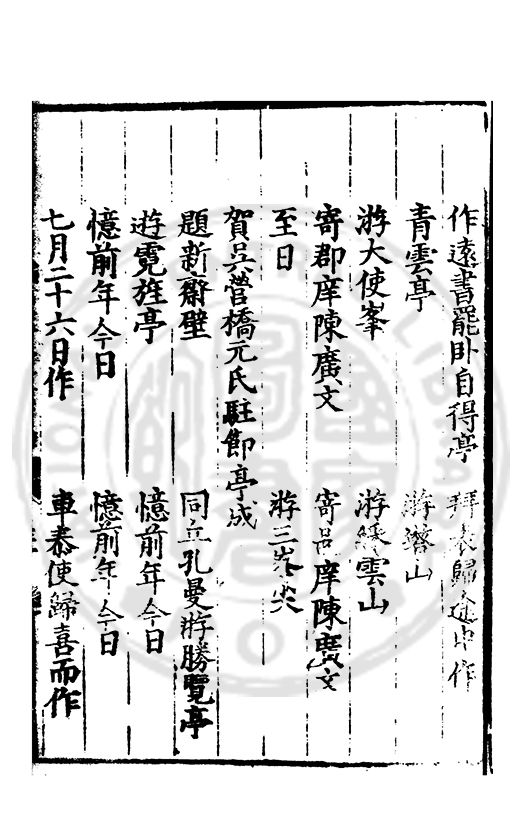 作遠書罷卧自得亭 拜表歸途中作
青雲亭 游鐙山
游大使峯 游縉雲山
寄郡庠陳廣文 寄邑庠陳廣文
至日 游三峯尖
賀吳營橋元氏駐節亭成
題新齋壁 同立孔曼游勝覽亭
遊霓旌亭 憶前年今日
憶前年今日 憶前年今日
七月二十六日作 車泰使歸喜而作